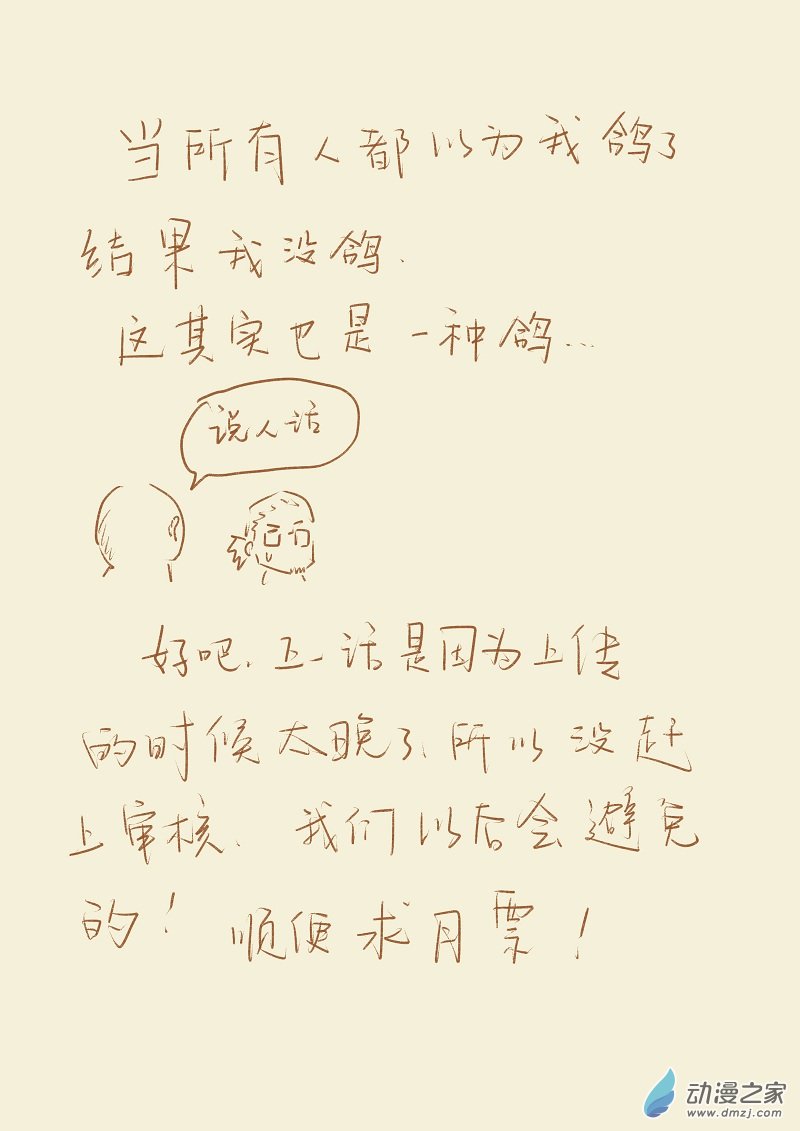 当所有人都以为我鸽了
结果我没鸽.
这其实也是一种鸽...
说人话
好吧.五一话是因为上传
的时候太晚了、所以没赶
上审核、我们以后会避免
的！顺便求月票！
动漫之家
www.dmzj.com